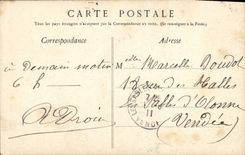 CARTE POSTALE
Tous les pays étrangers n'acceptent pas la Correspondance au recto. (Se renseigner à la Poste).
Correspondance
Adresse
Melle Marcelle Boudot
à demain matin
18 rue des Halles
6 h —
Les Sables d'Olonne
(Vendée)